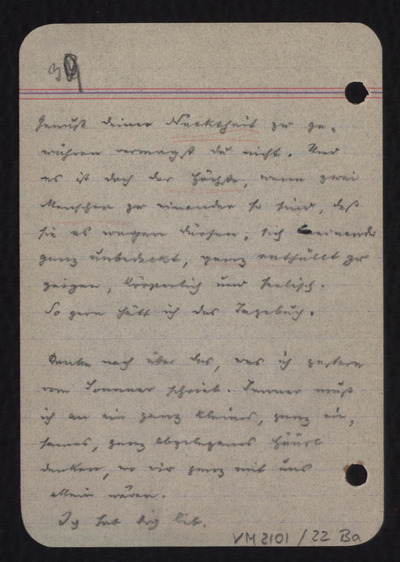 39
Genuß deiner Nacktheit zu ge-
währen vermagst du nicht. Und
es ist doch das Höchste, wenn zwei
Menschen zu einander so sind, daß
sie es wagen dürfen, sich einander
ganz unbedeckt, ganz enthüllt zu
zeigen, körperlich und seelisch.
So gern hätt ich das Tagebuch.
Denke nach über das, was ich gestern
vom Sommer schrieb. Immer muß
ich an ein ganz kleines, ganz ein-
sames, ganz abgelegenes Häusl
denken, wo wir ganz mit uns
allein wären.
Ich hab dich lieb.
VM 2101 / 22 Ba